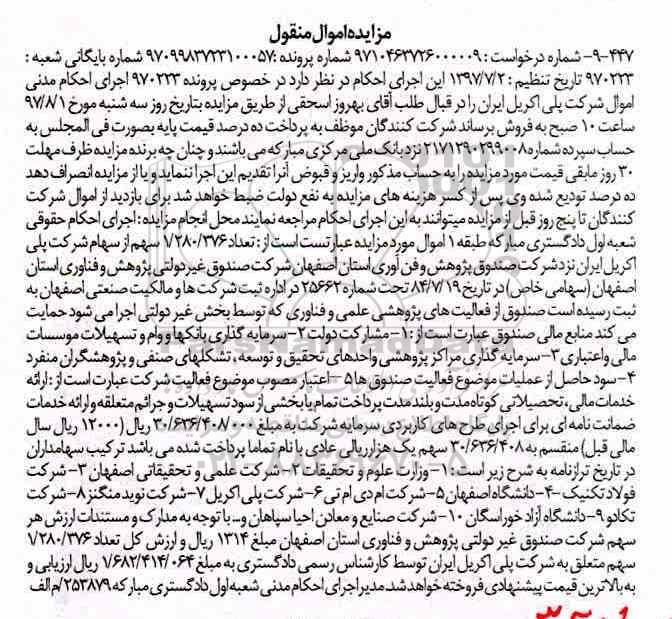 مزایده اموال منقول
۹-۴۴۷- شماره درخواست: ۹۷۱۰۴۶۳۷۲۶۰۰۰۰۰۹ شماره پرونده: ۹۷۰۹۹۸۳۷۲۳۱۰۰۰۵۷ شماره بایگانی شعبه:
۹۷۰۲۲۳ تاریخ تنظیم: ۱۳۹۷/۷/۲ این اجرای احکام در نظر دارد در خصوص پرونده ۹۷۰۲۲۳ اجرای احکام مدنی
اموال شرکت پلی اکریل ایران را در قبال طلب آقای بهروز اسحقی از طریق مزایده بتاریخ روز سه شنبه مورخ ۹۷/۸/۱
ساعت ۱۰ صبح به فروش برساند شرکت کنندگان موظف به پرداخت ده درصد قیمت پایه بصورت فی المجلس به
حساب سپرده شماره ۲۱۷۱۲۹۰۲۹۹۰۰۸ نزد بانک ملی مرکزی مبارکه می باشند و چنان چه برنده مزایده ظرف مهلت
۳۰ روز مابقی قیمت مورد مزایده را به حساب مذکور واریز و قبوض آنرا تقدیم این اجرا ننماید و یا از مزایده انصراف دهد
ده درصد تودیع شده وی پس از کسر هزینه های مزایده به نفع دولت ضبط خواهد شد برای بازدید از اموال شرکت
کنندگان تا پنج روز قبل از مزایده میتوانند به این اجرای احکام مراجعه نمایند محل انجام مزایده: اجرای احکام حقوقی
شعبه اول دادگستری مبارکه طبقه ۱ اموال مورد مزایده عبارتست است از: تعداد ۱/۲۸۰/۳۷۶ سهم از سهام شرکت پلی
اکریل ایران نزد شرکت صندوق پژوهش و فن آوری استان اصفهان شرکت صندوق غیر دولتی پژوهش و فناوری استان
اصفهان (سهامی خاص) در تاریخ ۸۴/۷/۱۹ تحت شماره ۲۵۶۶۲ در اداره ثبت شرکت ها و مالکیت صنعتی اصفهان به
ثبت رسیده است صندوق از فعالیت های پژوهشی علمی و فناوری که توسط بخش غیر دولتی اجرا می شود حمایت
می کند منابع مالی صندوق عبارت است از: ۱- مشارکت دولت ۲- سرمایه گذاری بانکها و وام و تسهیلات موسسات
مالی و اعتباری ۳- سرمایه گذاری مراکز پژوهشی واحدهای تحقیق و توسعه، تشکلهای صنفی و پژوهشگران منفرد
۴- سود حاصل از عملیات موضوع فعالیت صندوق ها ۵- اعتبار مصوب موضوع فعالیت شرکت عبارت است از: ارائه
خدمات مالی، تحصیلاتی کوتاه مدت و بلند مدت پرداخت تمام یا بخشی از سود تسهیلات و جرائم متعلقه و ارائه خدمات
ضمانت نامه ای برای اجرای طرح های کاربردی سرمایه شرکت به مبلغ ۳۰/۶۳۶/۴۰۸/۰۰۰ ریال (۱۲۰۰۰ ریال سال
مالی قبل) منقسم به ۳۰/۶۳۶/۴۰۸ سهم یک هزار ریالی عادی با نام تماما پرداخت شده می باشد ترکیب سهامداران
در تاریخ ترازنامه به شرح زیر است: ۱- وزارت علوم و تحقیقات ۲- شرکت علمی و تحقیقاتی اصفهان ۳- شرکت
فولاد تکنیک -۴- دانشگاه اصفهان ۵- شرکت ام دی ام تی ۶- شرکت پلی اکریل ۷- شرکت نوید منگنز ۸- شرکت
تکادو ۹- دانشگاه آزاد خوراسگان ۱۰- شرکت صنایع و معادن احیا سپاهان و... با توجه به مدارک و مستندات ارزش هر
سهم شرکت صندوق غیر دولتی پژوهش و فناوری استان اصفهان مبلغ ۱۳۱۴ ریال و ارزش کل تعداد ۱/۲۸۰/۳۷۶
سهم متعلق به شرکت پلی اکریل ایران توسط کارشناس رسمی دادگستری به مبلغ ۱/۶۸۲/۴۱۴/۰۶۴ ریال ارزیابی و
به بالاترین قیمت پیشنهادی فروخته خواهد شد. مدیر اجرای احکام مدنی شعبه اول دادگستری مبارکه ۲۵۳۸۷۹/م الف